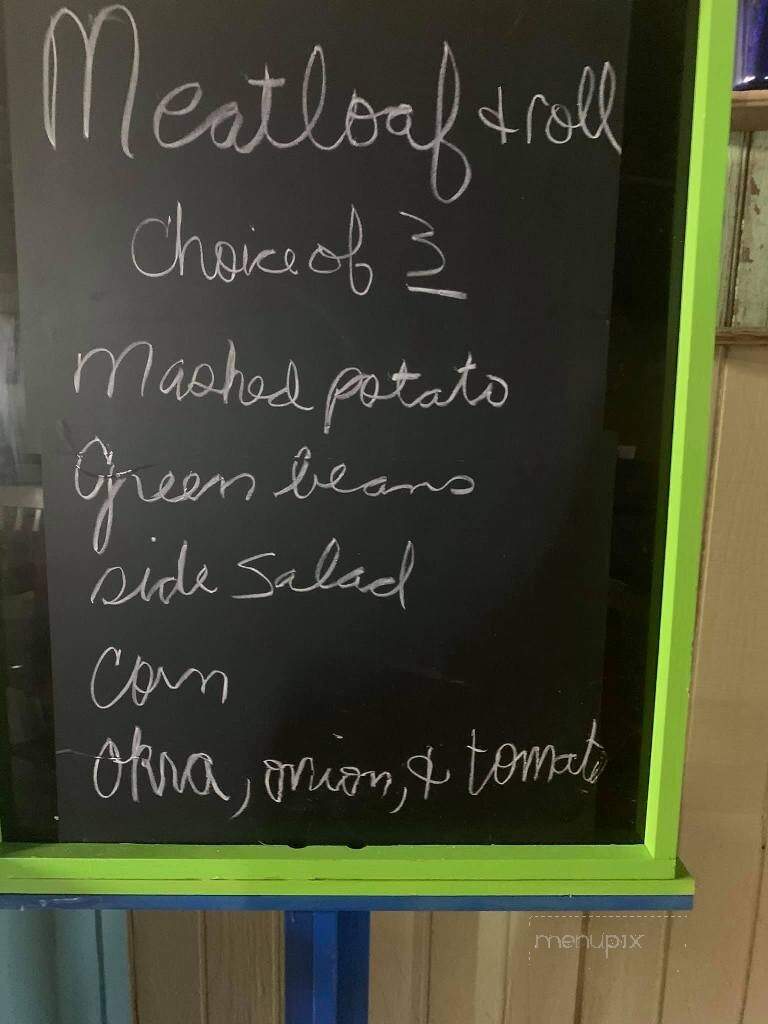 Meatloaf & roll
Choice of 3
Mashed potato
Green beans
side Salad
Corn
Okra, onion, & tomato
menupix